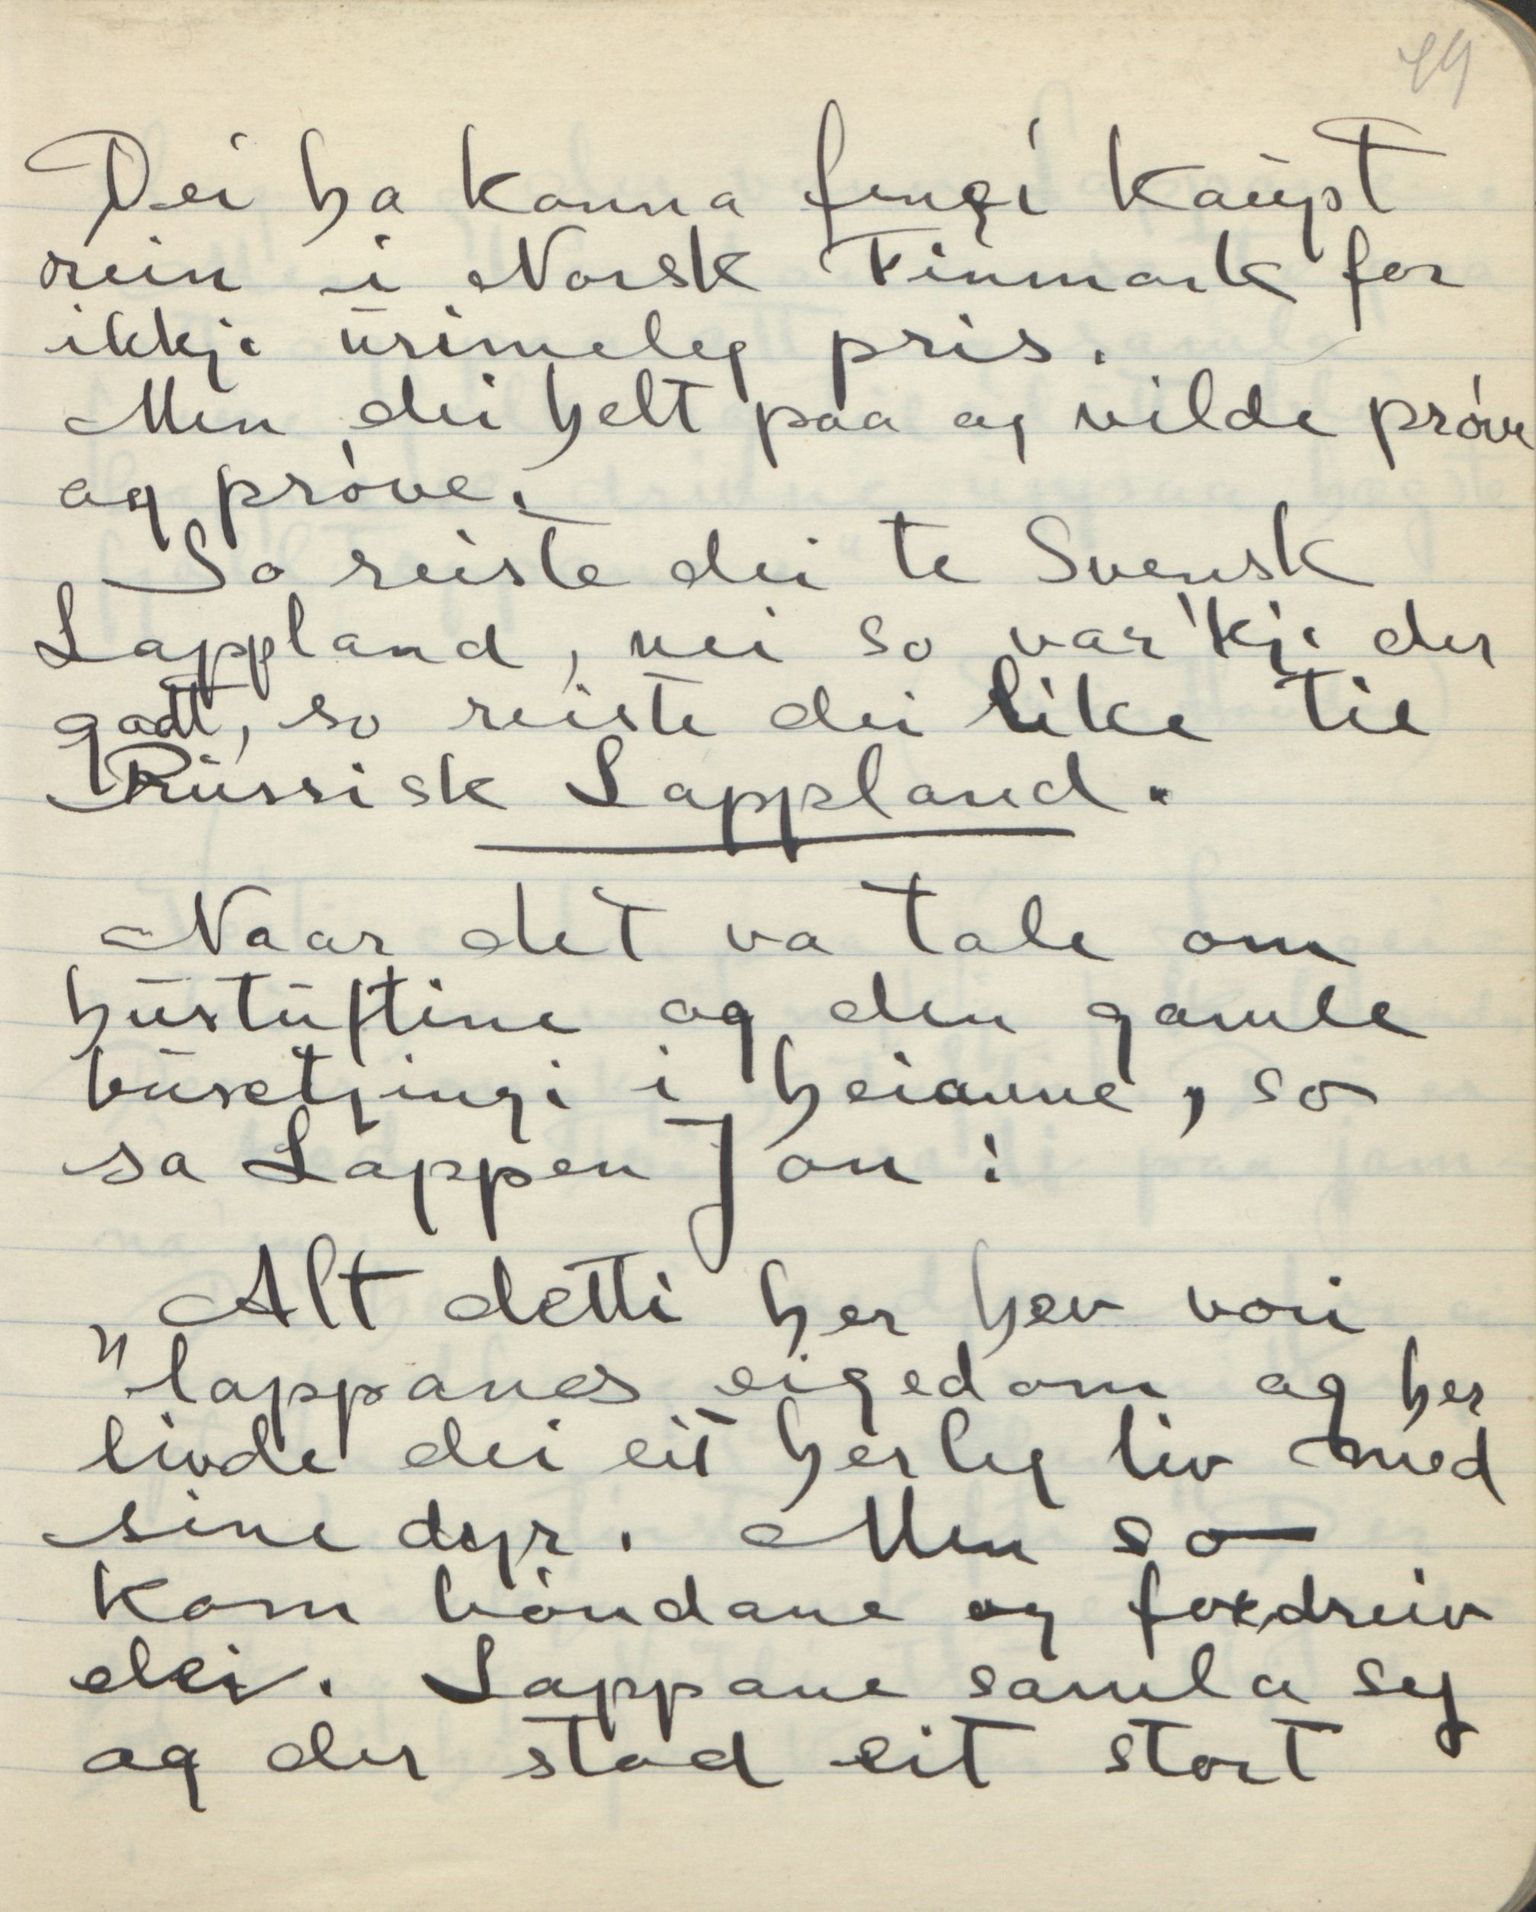 49
Dei ha kanna fengi kaupt
rein i Norsk Finmark for
ikkje urimeleg pris.
Men dei helt paa og vilde prøve
og prøve.
So reiste dei te Svensk
Lappland, nei so var'kje der
godt, so reiste dei like til
Russisk Lappland.
Naar det va tale om
hustuftine og den gamle
busetjingi i heianne, so
sa Lappen Jon:
"Alt detti her hev vori
"lappanes eigedom og her
livde dei eit herleg liv med
sine dyr. Men so
kom bøndane og fordreiv
dei. Lappane samla seg
og der stod eit stort